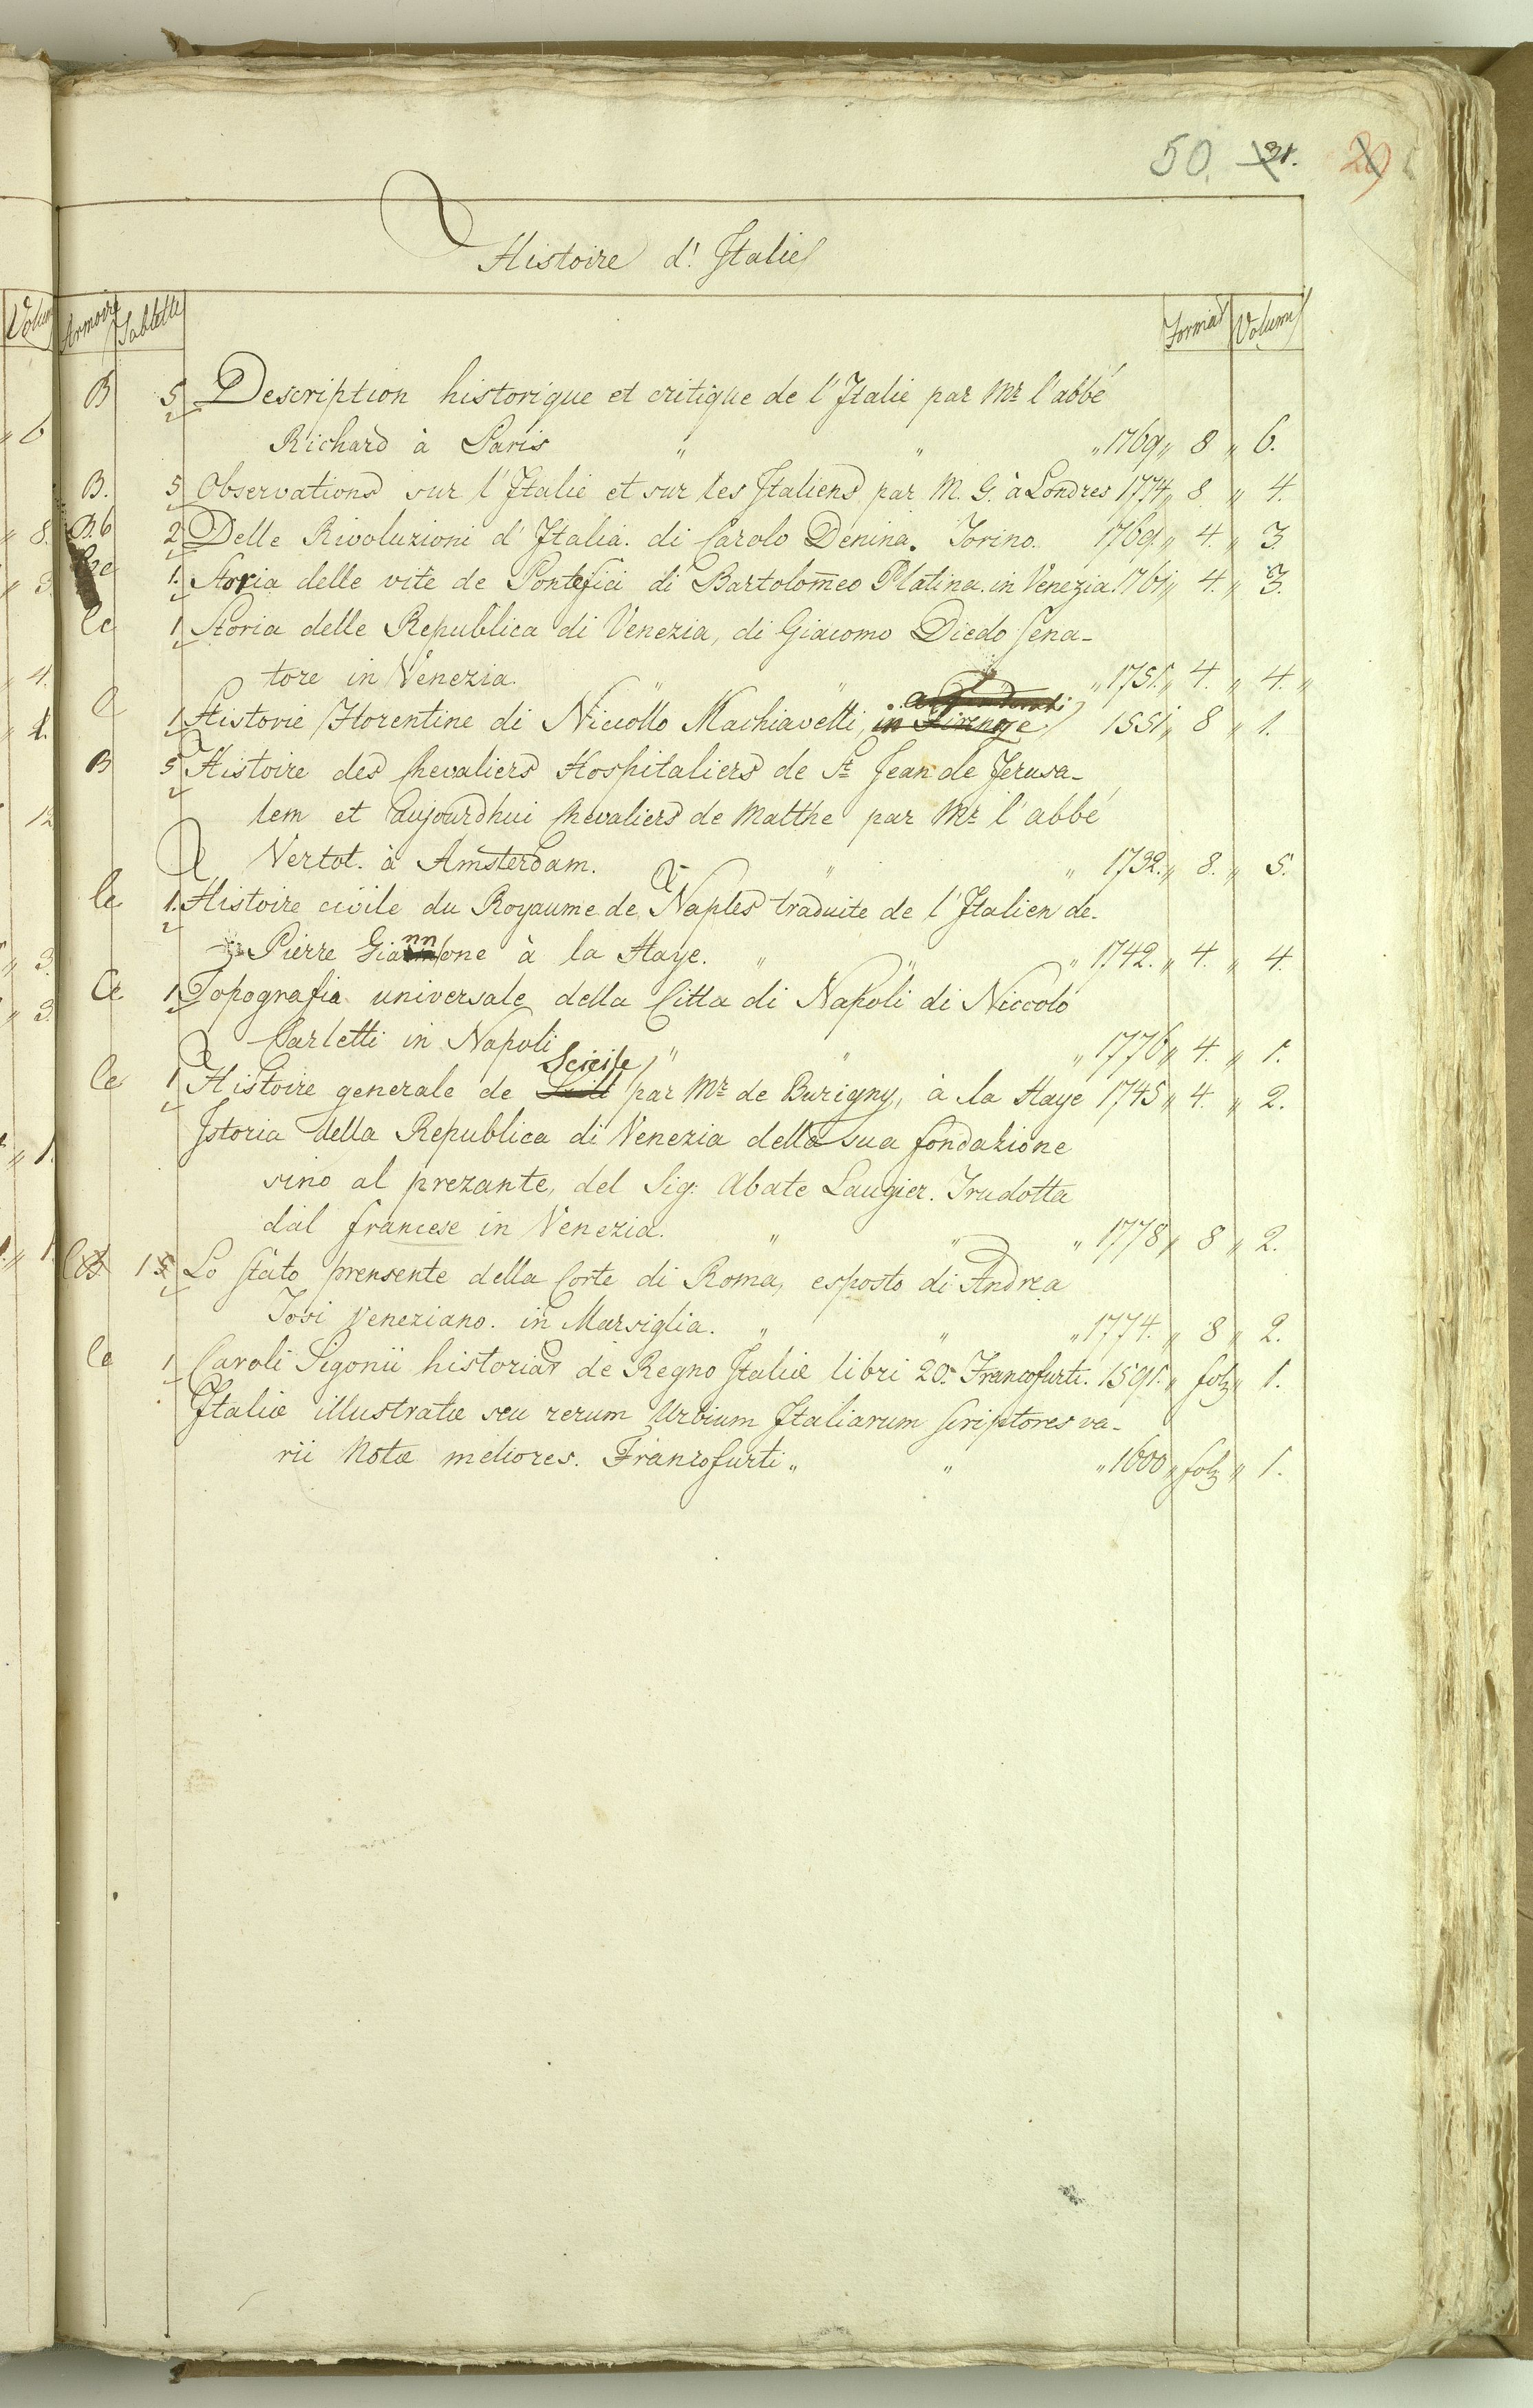 50. 31. 29
Histoire d'Italie
Armoire Tablette Format Volume
B 5 Description historique et critique de l'Italie par Mr l'abbé
Richard à Paris " " " 1769 " 8 " 6.
B. 5 Observations sur l'Italie et sur les Italiens par M. G. à Londres 1774 " 8 " 4.
B.b 2 Delle Rivoluzioni d'Italia. di Carolo Denina. Torino. 1769 " 4. " 3.
1. Storia delle vite de Pontefici di Bartolomeo Platina. in Venezia. 1761 " 4. " 3.
Cc 1 Storia delle Republica di Venezia, di Giacomo Diedo Sena-
tore in Venezia. " " " 1751. " 4. " 4. "
C 1 Historie Florentine di Niccollo Machiavelli, in Firenze 1551 " 8 " 1.
B 5 Histoire des Chevaliers Hospitaliers de St Jean de Jerusa-
lem et aujourdhui Chevaliers de Malthe par Mr l'abbé
Vertot. à Amsterdam. " " 1732. " 8. " 5.
Cc 1. Histoire civile du Royaume de Naples traduite de l'Italien de.
Pierre Giannone à la Haye. " " " 1742. " 4. " 4.
Cc 1 Topografia universale della Citta di Napoli di Niccolo
Carletti in Napoli " " " 1776 " 4. " 1.
Scicile
Cc 1 Histoire generale de par Mr de Burigny, à la Haye 1745 " 4. " 2.
Istoria della Republica di Venezia della sua fondazione
sino al prezante, del Sig: Abate Laugier. Trudotta
dal francese in Venezia. " " " 1778 " 8 " 2.
1 5 Lo stato prensente della Corte di Roma, esposto di Andrea
Tosi Veneziano. in Marsiglia. " " " 1774. " 8 " 2.
Cc 1 Caroli Sigonii historiar de Regno Italiæ libri 20. Francofurti. 1591. " fol " 1.
Italiæ illustratæ seu rerum Urbium Italiarum scriptores va-
rii Notæ meliores. Francofurti " " " 1600 " fol " 1.